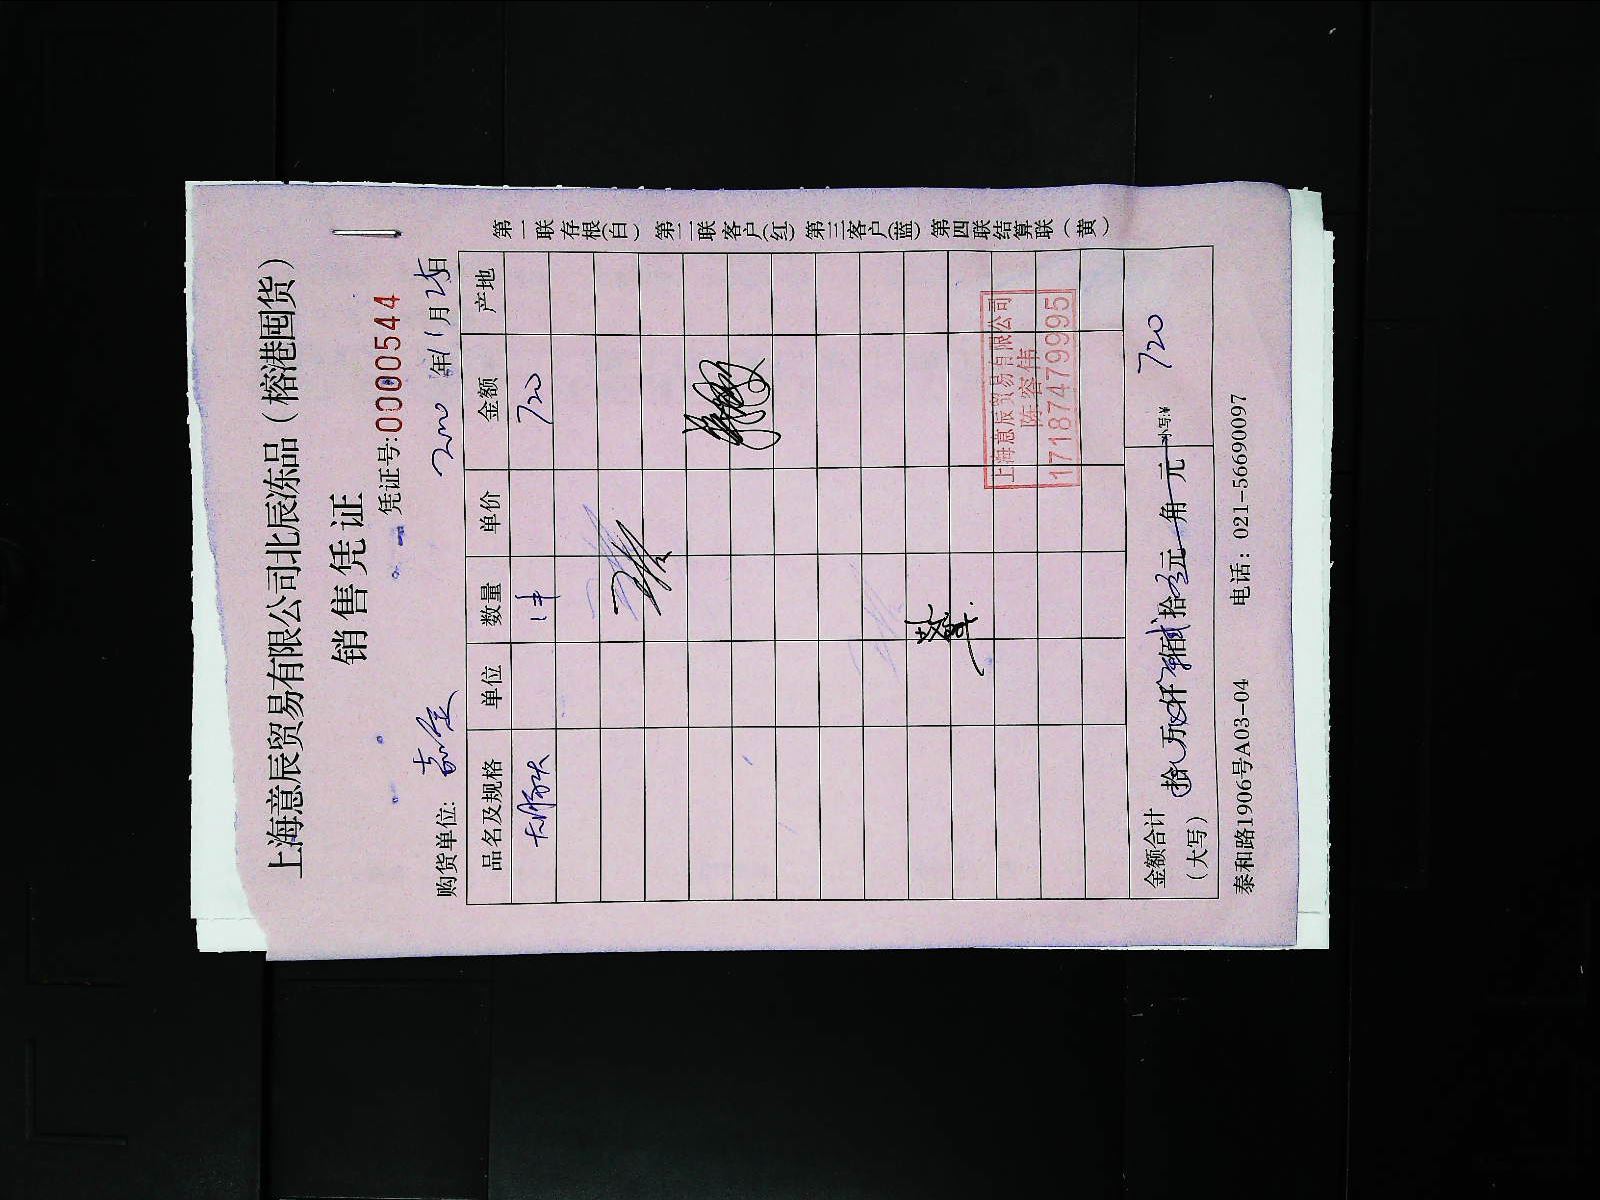 上海意辰贸易有限公司北辰冻品（榕港囤货）
销售凭证
凭证号:0000544
购货单位:
年11月25日
品名及规格 单位 数量 单价 金额 产地
大肠头 1件 720
上海意辰贸易有限公司
陈容伟
17187479995
金额合计
（大写）
拾 万 仟 佰 拾 元 角 元 小写:¥ 720
泰和路1906号A03-04 电话：021-56690097
第一联存根(白) 第二联客户(红) 第三客户(蓝) 第四联结算联（黄）